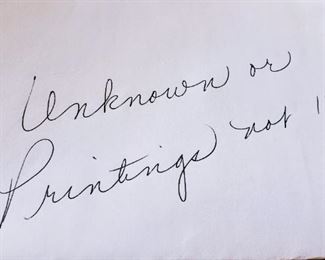 Unknown or
Printings not